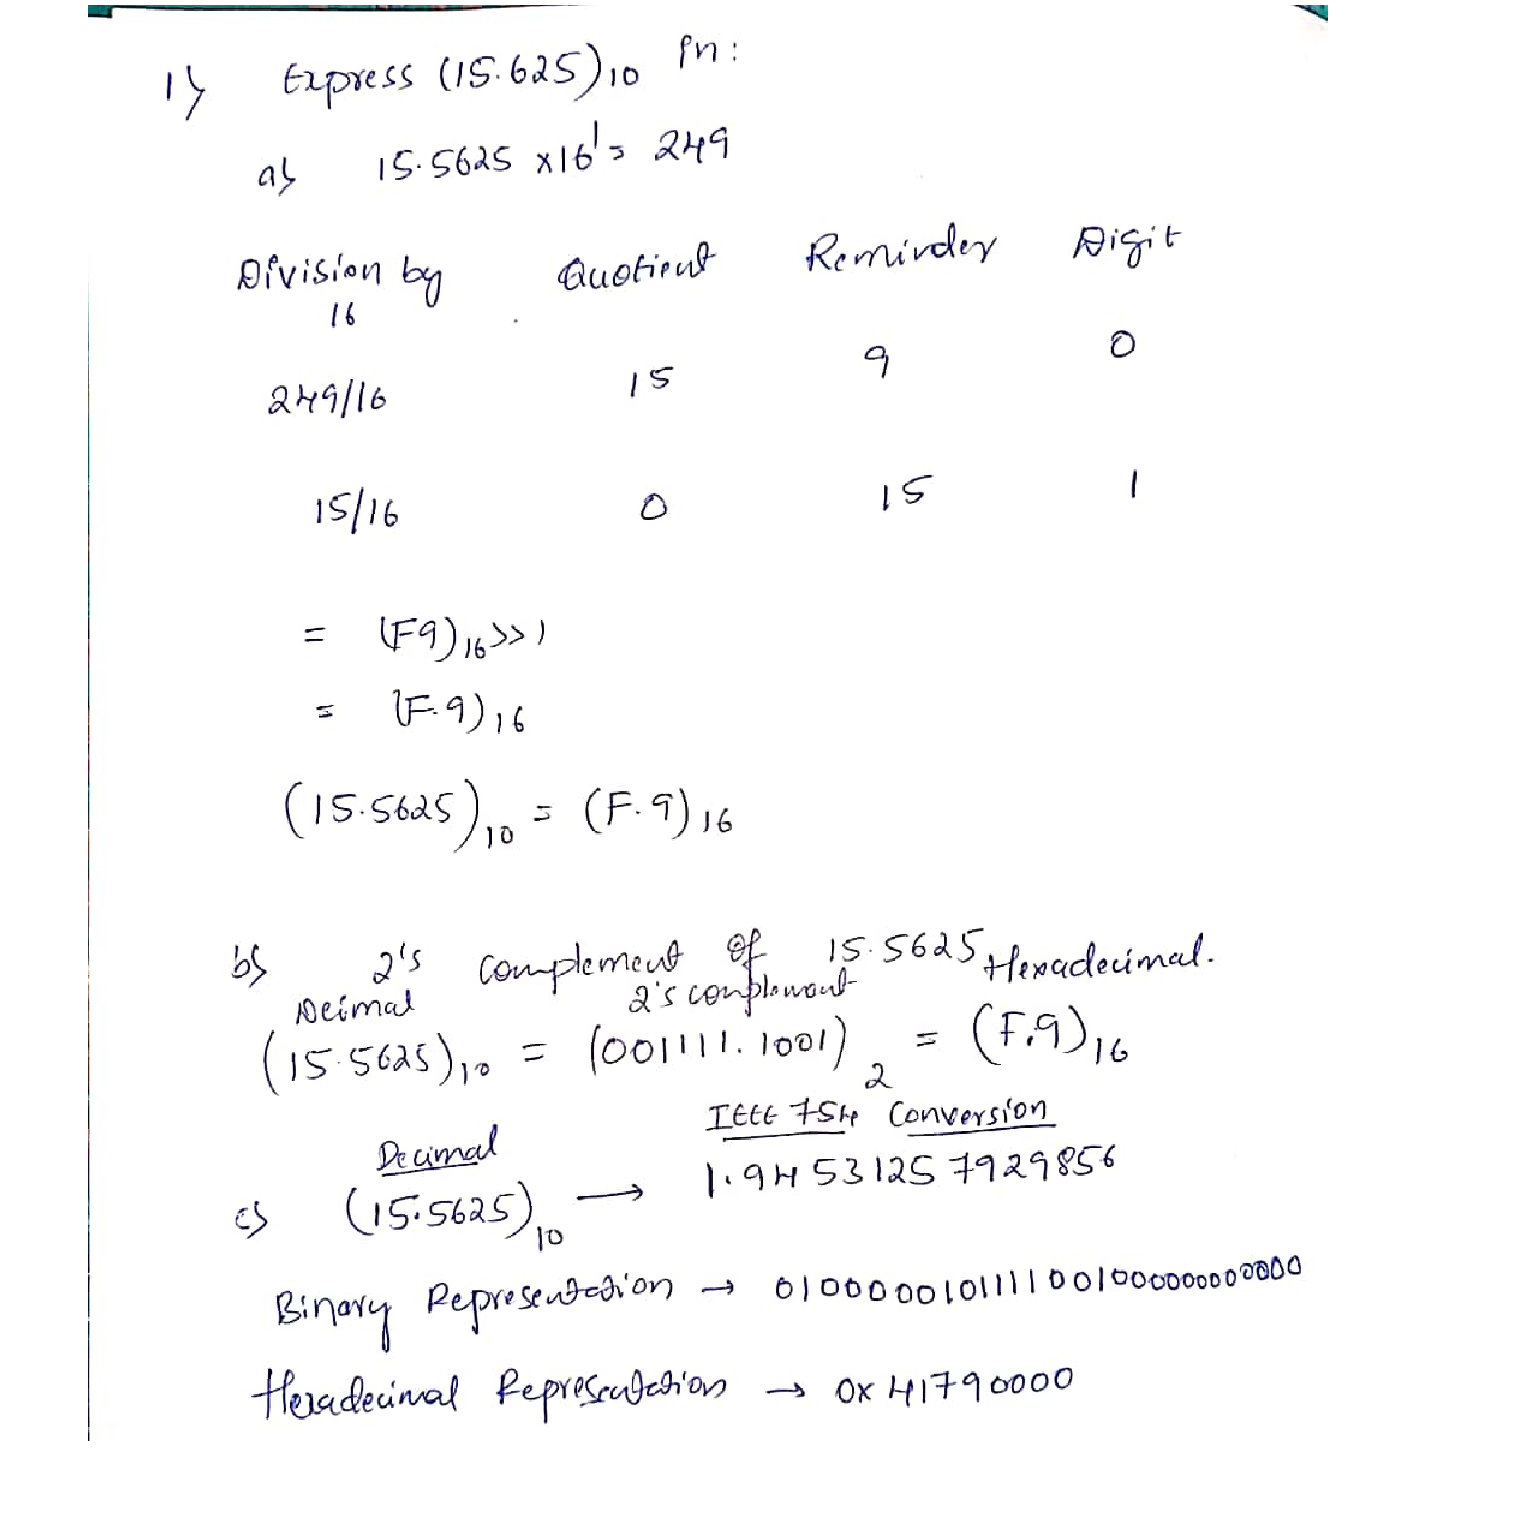 1) Express (15.625)10 in:
a) 15.5625 x16^1 = 249
Division by 16 Quotient Reminder Digit
249/16 15 9 0
15/16 0 15 1
= (F9)16 >> 1
= (F.9)16
(15.5625)10 = (F.9)16
b) 2's complement of 15.5625
Deimal 2's complement Hexadecimal.
(15.5625)10 = (001111.1001)2 = (F.9)16
Decimal IEEE 754 Conversion
c) (15.5625)10 → 1.9453125 7929856
Binary Representation → 01000001011110010000000000000
Hexadecimal Representation → 0x41790000